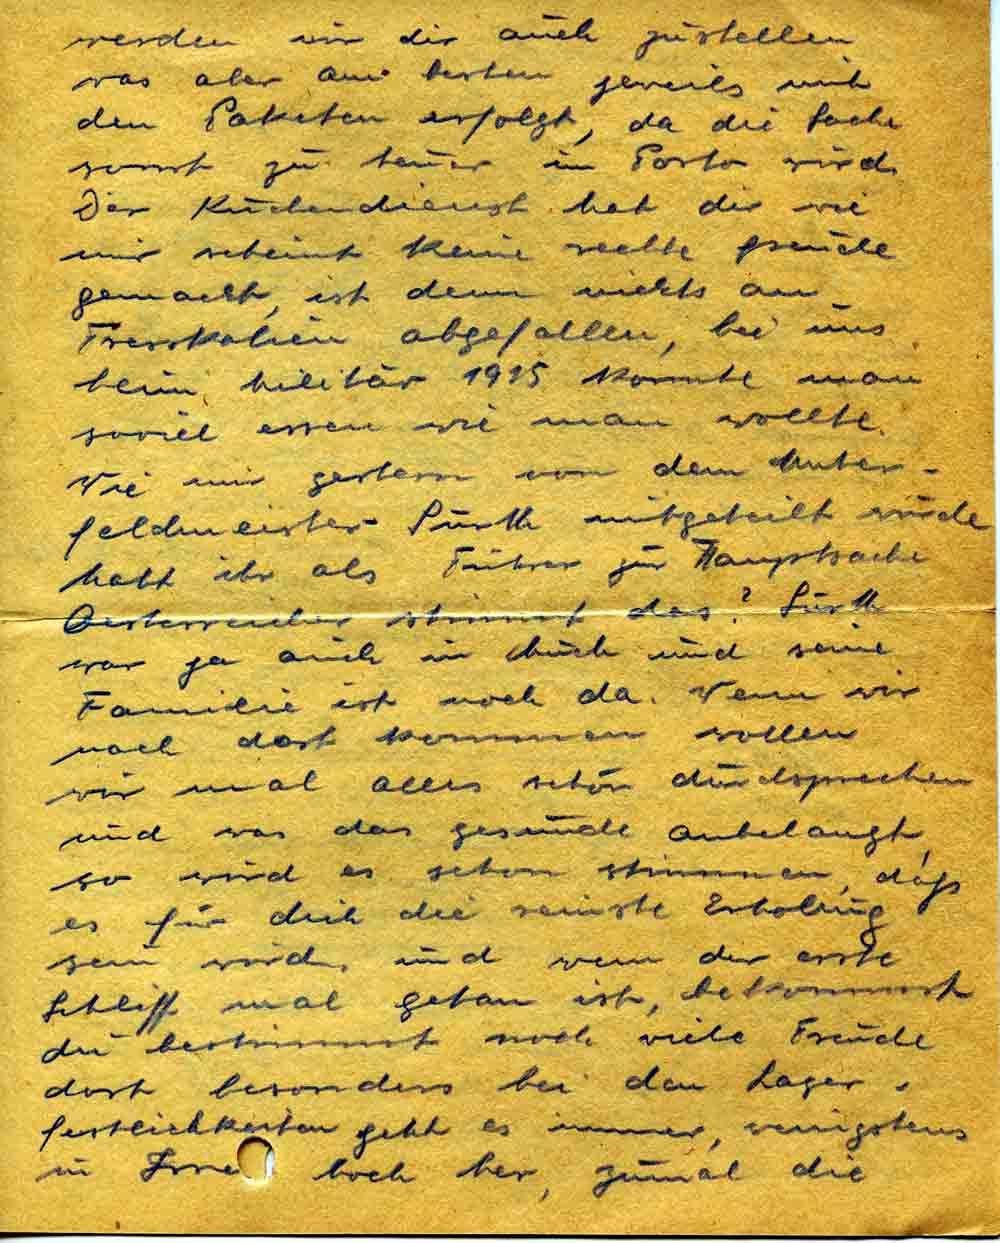 werden wir dir auch zustellen
was aber am besten jeweils mit
den Paketen erfolgt, da die Sache
sonst zu teuer im Porto wird.
Der Küchendienst hat dir wie
mir scheint keine rechte Freude
gemacht, ist denn nichts an
Fresskalien abgefallen, bei uns
beim Militär 1915 konnte man
soviel essen wie man wollte.
Wie mir gestern von dem Unter-
feldmeister Fürth mitgeteilt wurde
habt ihr als Führer zur Hauptsache
Oesterreicher stimmt das? Fürth
war ja auch in und seine
Familie ist noch da. Wenn wir
nach dort kommen wollen
wir mal alles schön durchsprechen
und was das gesunde anbelangt,
so wird es schon stimmen, daß
es für dich die reinste Erholung
sein wird, und wenn der erste
Schliff mal getan ist, bekommst
du bestimmt noch viele Freude
dort besonders bei den Lager-
festlichkeiten geht es immer, wenigstens
in hoch her, zumal die